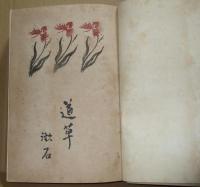 道草
漱石